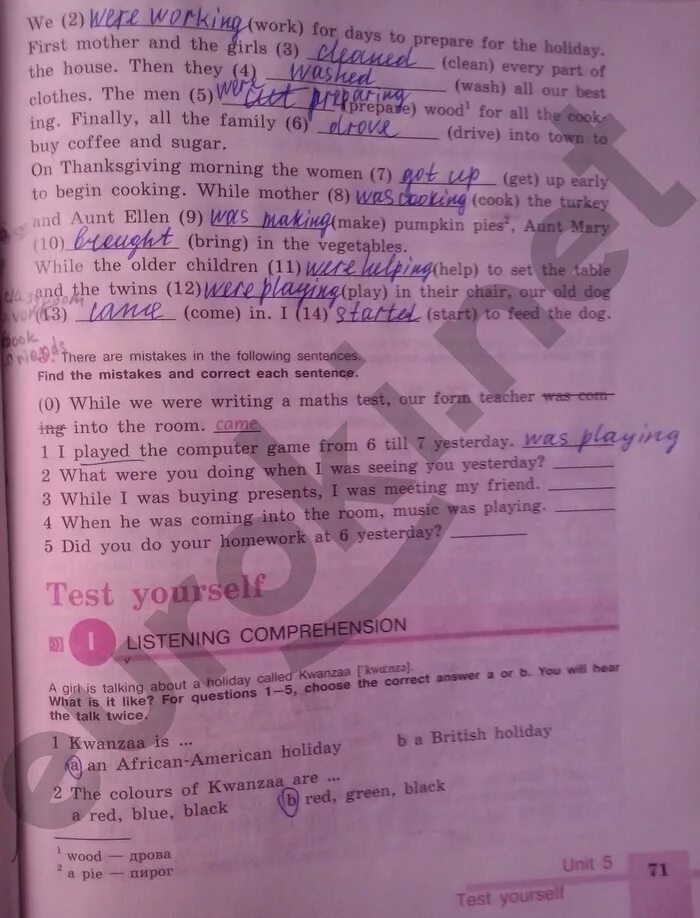 We (2) were working (work) for days to prepare for the holiday.
First mother and the girls (3) cleaned (clean) every part of
the house. Then they (4) washed (wash) all our best
clothes. The men (5) were preparing (prepare) wood¹ for all the cook-
ing. Finally, all the family (6) drove (drive) into town to
buy coffee and sugar.
On Thanksgiving morning the women (7) got up (get) up early
to begin cooking. While mother (8) was cooking (cook) the turkey
and Aunt Ellen (9) was making (make) pumpkin pies², Aunt Mary
(10) brought (bring) in the vegetables.
While the older children (11) were helping (help) to set the table
and the twins (12) were playing (play) in their chair, our old dog
(13) came (come) in. I (14) started (start) to feed the dog.
There are mistakes in the following sentences.
Find the mistakes and correct each sentence.
(0) While we were writing a maths test, our form teacher was com-
ing into the room. came
1 I played the computer game from 6 till 7 yesterday. was playing
2 What were you doing when I was seeing you yesterday?
3 While I was buying presents, I was meeting my friend.
4 When he was coming into the room, music was playing.
5 Did you do your homework at 6 yesterday?
Test yourself
1 LISTENING COMPREHENSION
A girl is talking about a holiday called Kwanzaa ['kwɑːnzə].
What is it like? For questions 1–5, choose the correct answer a or b. You will hear
the talk twice.
1 Kwanzaa is ...
a an African-American holiday b a British holiday
2 The colours of Kwanzaa are ...
a red, blue, black b red, green, black
¹ wood — дрова
² a pie — пирог
Unit 5 71
Test yourself
euroki.net